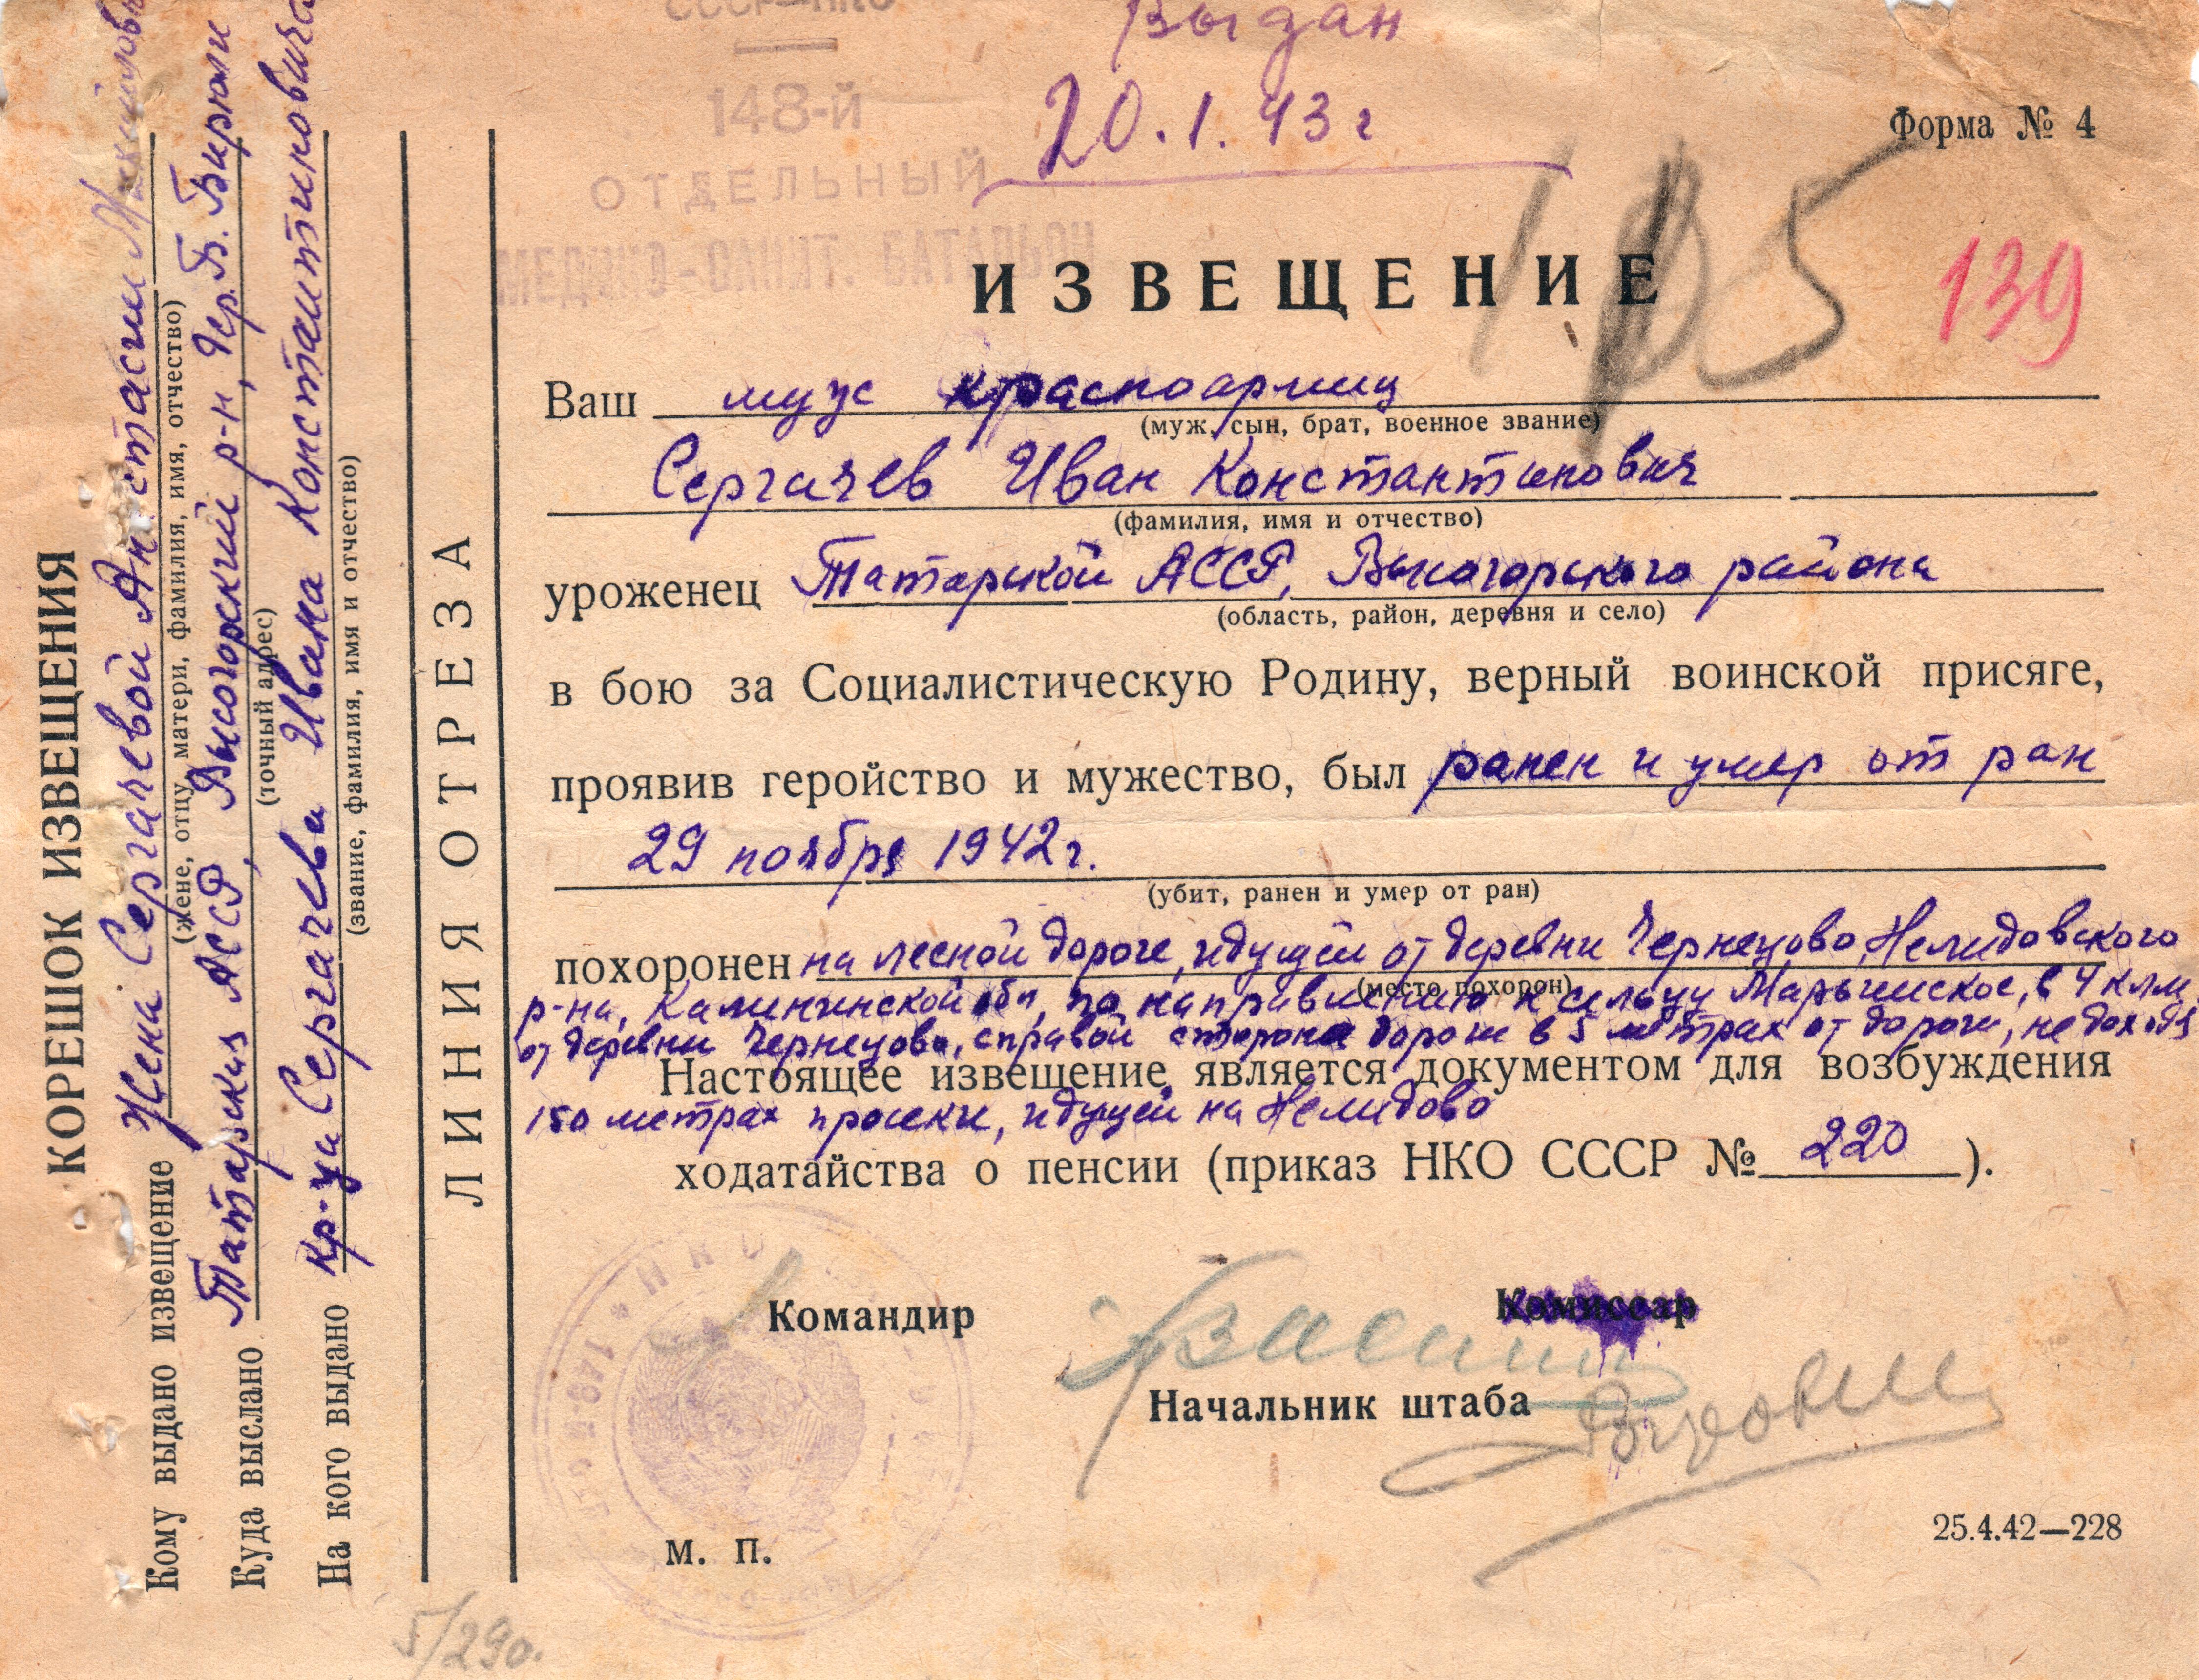 КОРЕШОК ИЗВЕЩЕНИЯ
Кому выдано извещение Жена Сергачевой Анастасии
(жене, отцу, матери, фамилия, имя, отчество)
Куда выслано Татарская АССР, Высогорский р-н, дер. Б. Бирюли
(точный адрес)
На кого выдано кр-ца Сергачева Ивана Константиновича
(звание, фамилия, имя и отчество)
ЛИНИЯ ОТРЕЗА
СССР—НКО
148-й
ОТДЕЛЬНЫЙ
МЕДИКО-САНИТ. БАТАЛЬОН
Выдан
20.1.43 г
Форма № 4
139
ИЗВЕЩЕНИЕ
Ваш муж красноармиц
(муж, сын, брат, военное звание)
Сергачев Иван Константинович
(фамилия, имя и отчество)
уроженец Татарской АССР, Высогорского района
(область, район, деревня и село)
в бою за Социалистическую Родину, верный воинской присяге,
проявив геройство и мужество, был ранен и умер от ран
29 ноября 1942 г.
(убит, ранен и умер от ран)
похоронен на лесной дороге, идущей от деревни Чернецово, Нелидовского
(место похорон)
р-на, Калининской обл, по направлению к сельцу Марьинское, в 4 клм.
от деревни Чернецово, справой стороне дороги в 5 метрах от дороги, недоходя
Настоящее извещение является документом для возбуждения
150 метрах просеки, идущей на Нелидово
ходатайства о пенсии (приказ НКО СССР № 220 ).
Командир
Комиссар
Начальник штаба
М. П.
25.4.42—228
5/290.